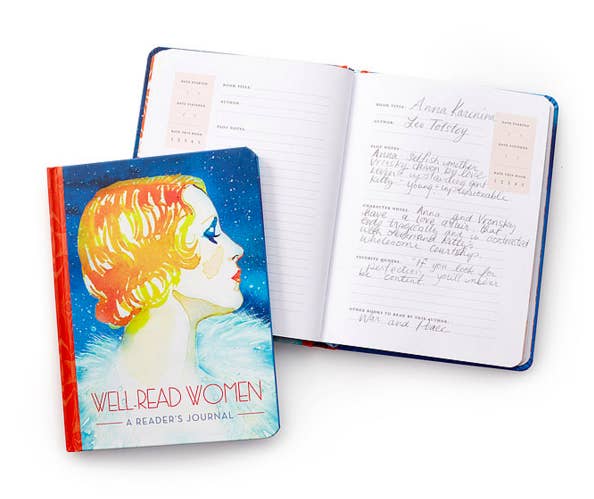 WELL-READ WOMEN
A READER'S JOURNAL
DATE STARTED
DATE FINISHED
RATE THIS BOOK
1 2 3 4 5
BOOK TITLE:
AUTHOR:
PLOT NOTES:
BOOK TITLE: Anna Karinina
AUTHOR: Leo Tolstoy
DATE STARTED
DATE FINISHED
RATE THIS BOOK
1 2 3 4 5
PLOT NOTES:
Anna selfish mother
Vronsky driven by love
Levin upstanding gent
Kitty - young - impressionable
CHARACTER NOTES: Anna and Vronsky
have a love affair that
ends tragically and is contrasted
with Levin and Kitty's
wholesome courtship.
FAVORITE QUOTES: "If you look for
perfection, you'll never
be content."
OTHER BOOKS TO READ BY THIS AUTHOR:
War and Peace